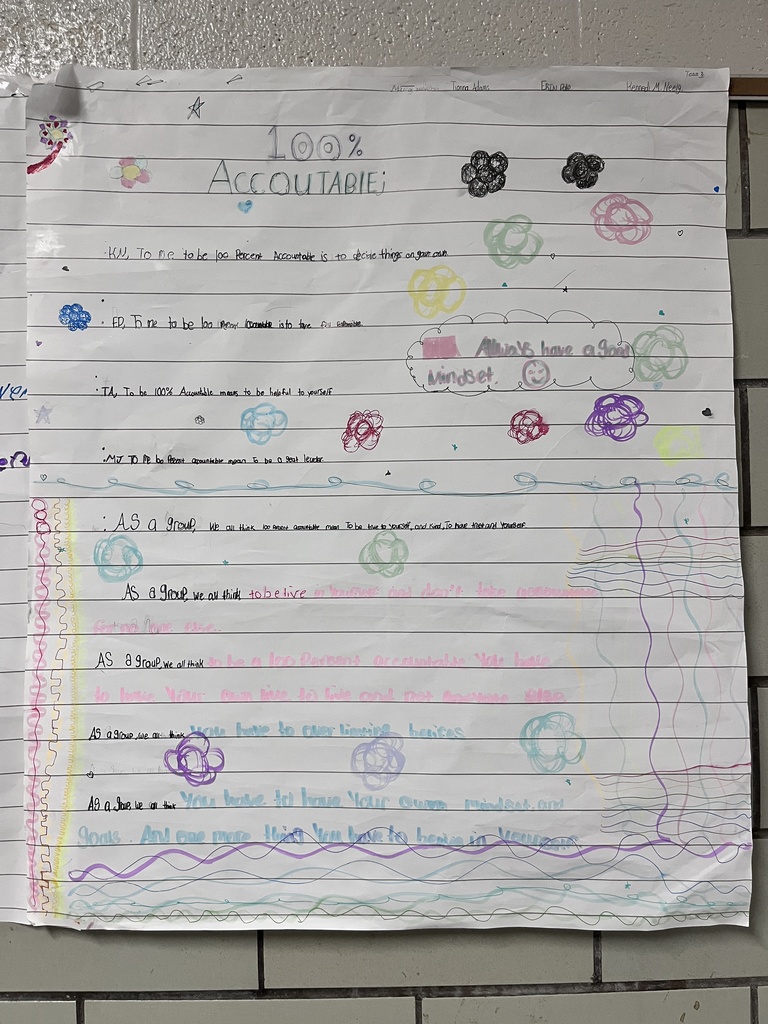 Team B
Tionna Adams
Kennedi M. Neely
100%
ACCOUTABLE;
KN, To me to be 100 Percent Accountable is to decide things on your own.
ED, To me to be 100 Percent accountable is to
Allways have a good
mindset.
TA, To be 100% Accountable means to be helpful to yourself
MJ TO ME be Percent accountable mean To be a leader.
AS a group, We all think 100 Percent accountable mean To be true to yourself, and kind, To have and yourself.
AS a group, we all think to belive in yourself and don't take
for no one else..
AS a group, we all think to be a 100 Percent accountable You have
to have Your own live to live and not else.
AS a group, we all think You have to over
AS a group, we all think You have to have Your own mindset, and
goals. And one more thing You have to in Yourself.